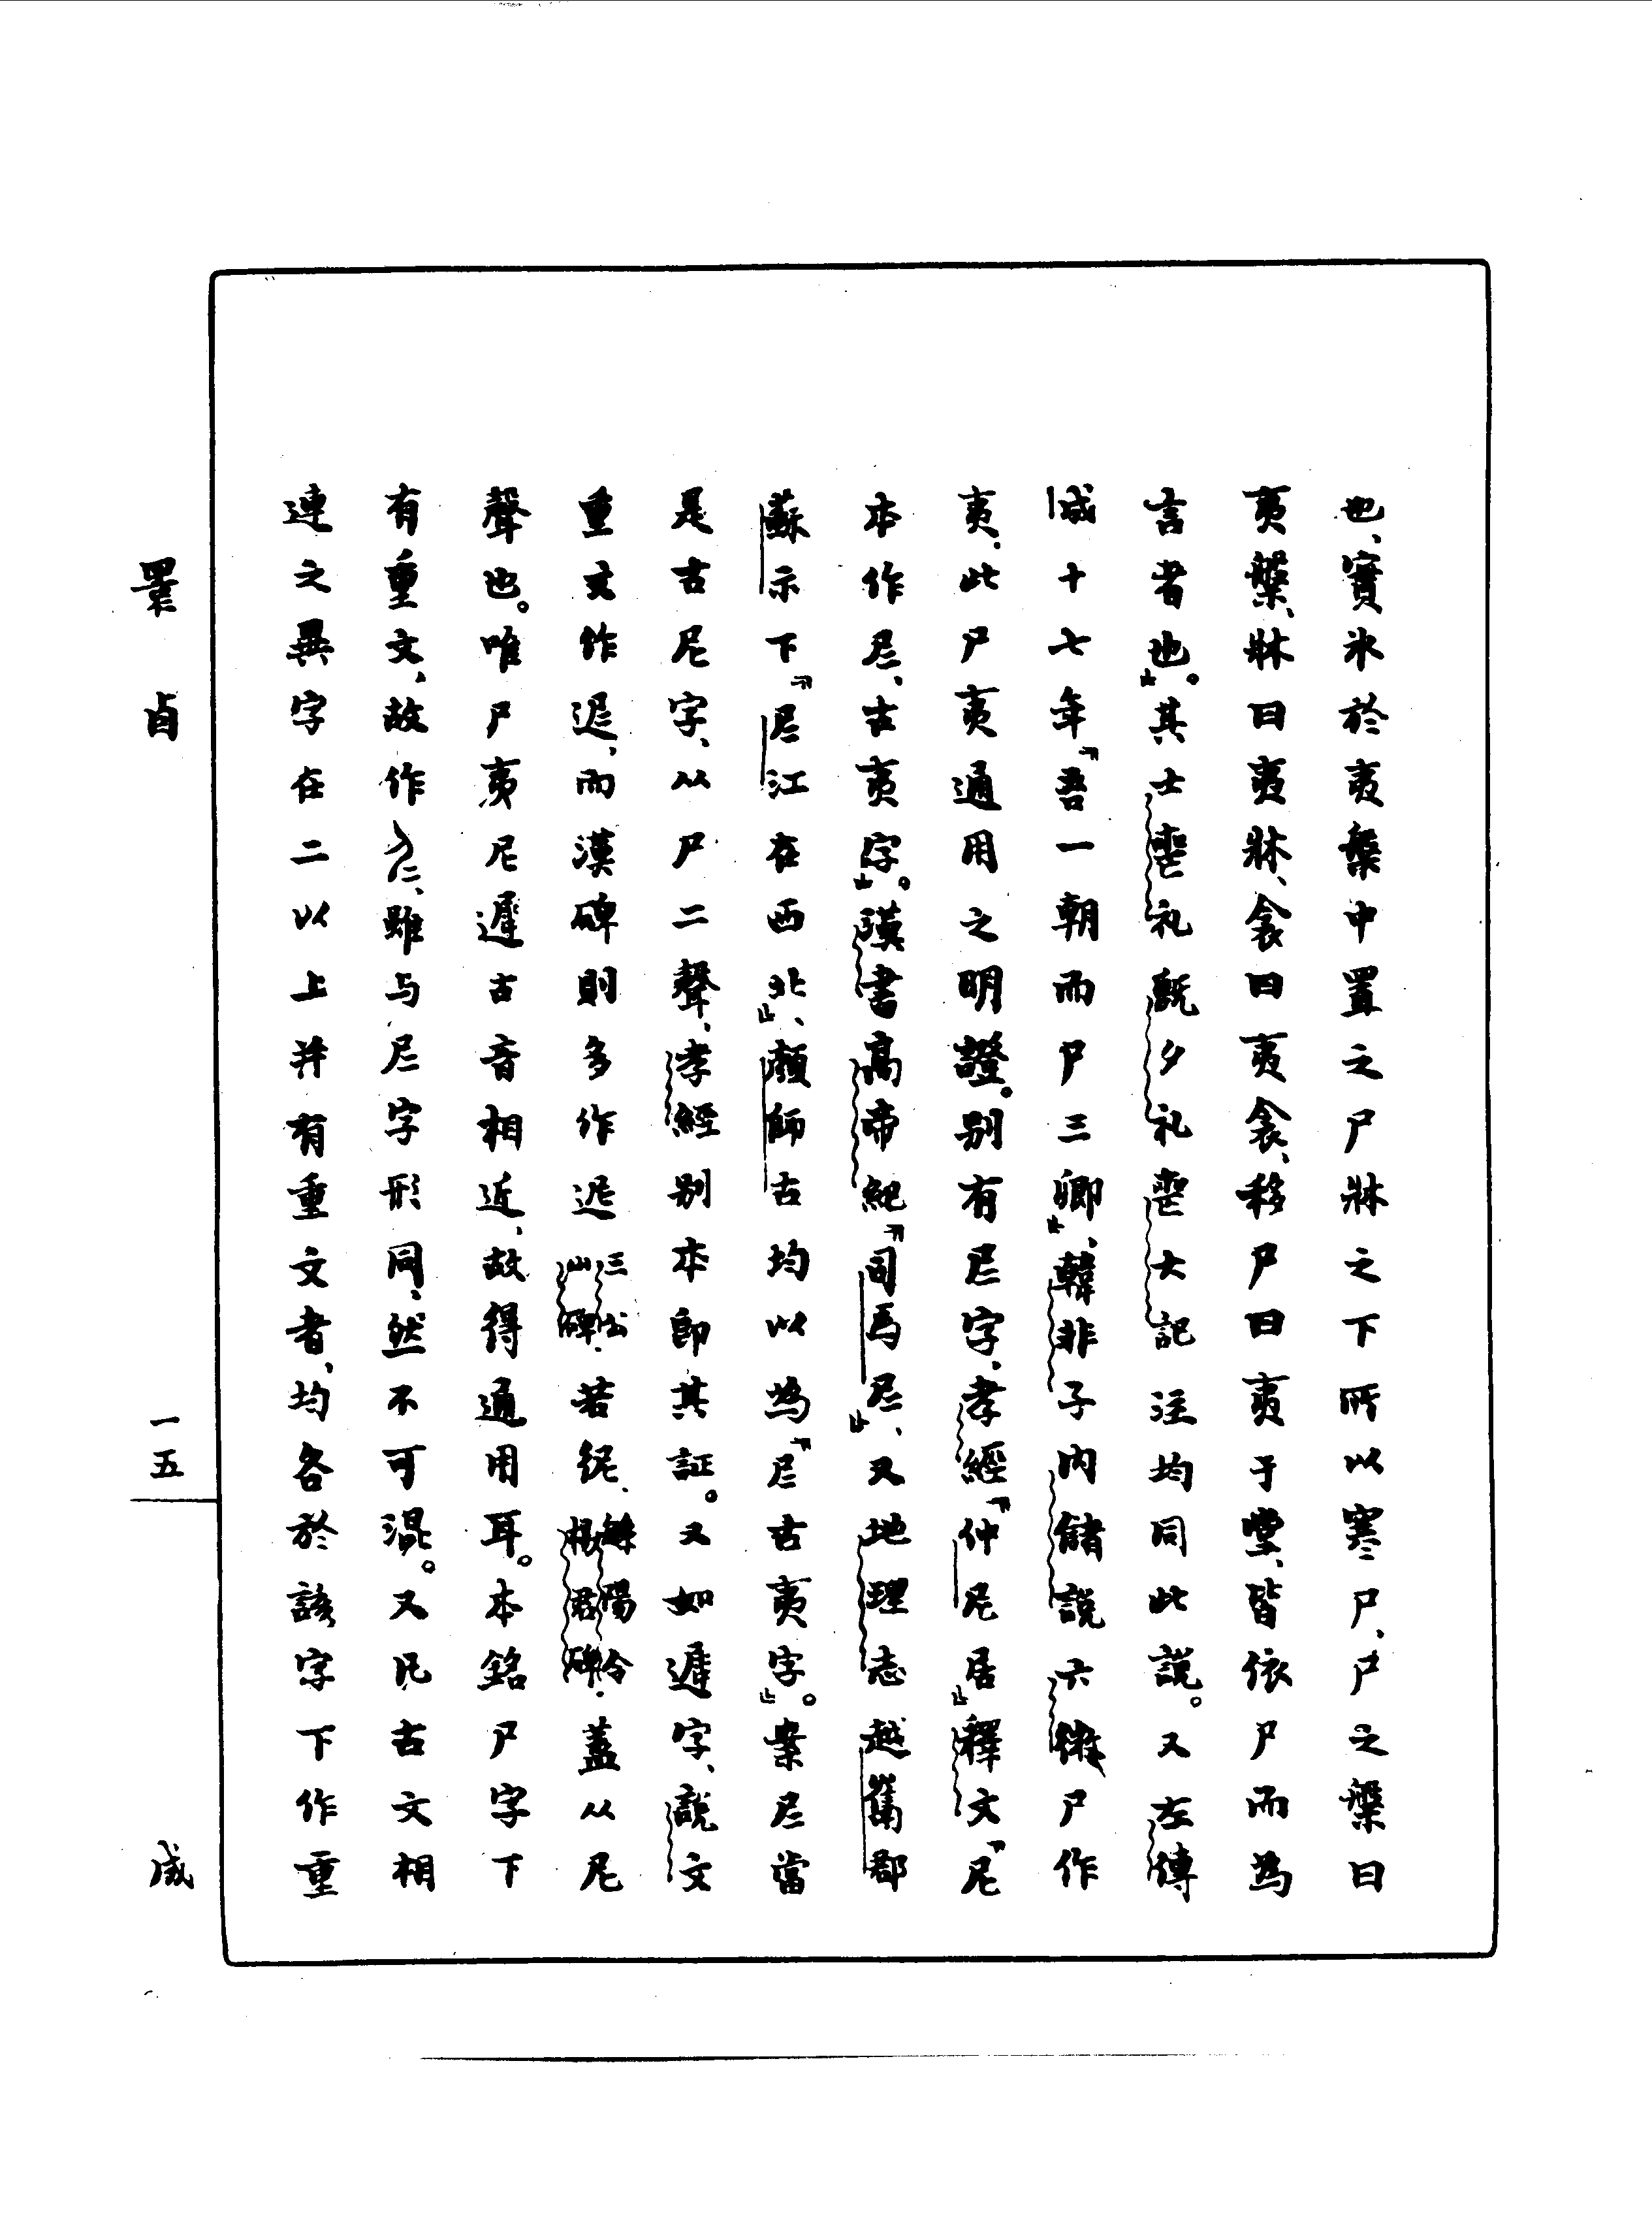 也、實氷於夷槃中置之尸牀之下所以寒尸、尸之槃曰
夷槃、牀曰夷牀、衾曰夷衾、移尸曰夷于堂、皆依尸而為
言者也。』其士喪礼既夕礼喪大記注均同此說。又左傳
成十七年『吾一朝而尸三卿』、韓非子內儲說六微尸作
夷、此尸夷通用之明證。别有𡰥字、孝經『仲尼居』釋文『尼
本作𡰥、古夷字。』漢書高帝紀『司馬𡰥』、又地理志越嶲郡
蘇示下『𡰥江在西北』、顏師古均以為『𡰥古夷字』。案𡰥當
是古尼字、从尸二聲、孝經别本即其証。又如遲字、說文
重文作迡、而漢碑則多作迡三公山碑.若𢓡.繁陽令楊君碑.蓋从尼
聲也。唯尸夷尼遲古音相近、故得通用耳。本銘尸字下
有重文、故作𠂉二、雖与𡰥字形同、然不可混。又凡古文相
連之異字在二以上并有重文者、均各於該字下作重
䍙卣
一五
咸